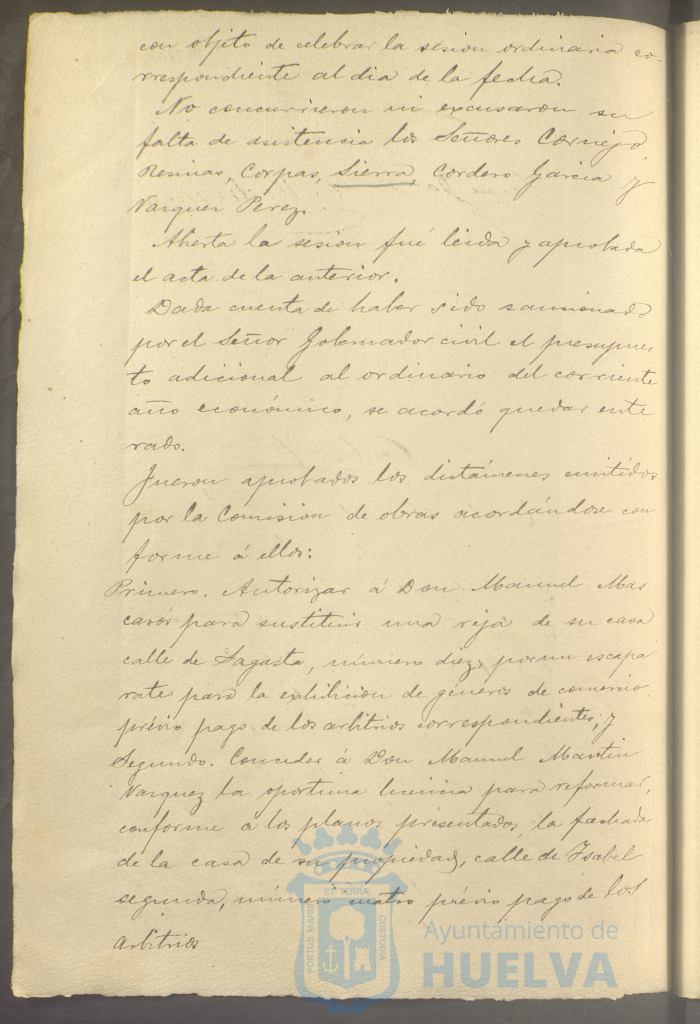 con objeto de celebrar la sesion ordinaria co-
rrespondiente al dia de la fecha.
No concurrieron ni excusaron su
falta de asistencia los Señores Cornejo,
Resinas, Corpas, Sierra, Cordero Garcia y
Vazquez Perez.
Abierta la sesion fué leida y aprobada
el acta de la anterior.
Dada cuenta de haber sido sancionado
por el Señor Gobernador civil el presupues
to adicional al ordinario del corriente
año económico, se acordó quedar ente
rado.
Fueron aprobados los dictámenes emitidos
por la Comision de obras acordándose con
forme á ellos:
Primero. Autorizar á Don Manuel Mas
carós para sustituir una reja de su casa
calle de Sagasta, número diez, por un escapa
rate para la exhibicion de géneros de comercio,
prévio pago de los arbitrios correspondientes; y
Segundo. Conceder á Don Manuel Martin
Vazquez la oportuna licencia para reformar,
conforme á los planos presentados, la fachada
de la casa de su propiedad, calle de Isabel
segunda, número cuatro prévio pago de los
arbitrios
PORTUS MARIS
ET TERRÆ
CUSTODIA
Ayuntamiento de
HUELVA